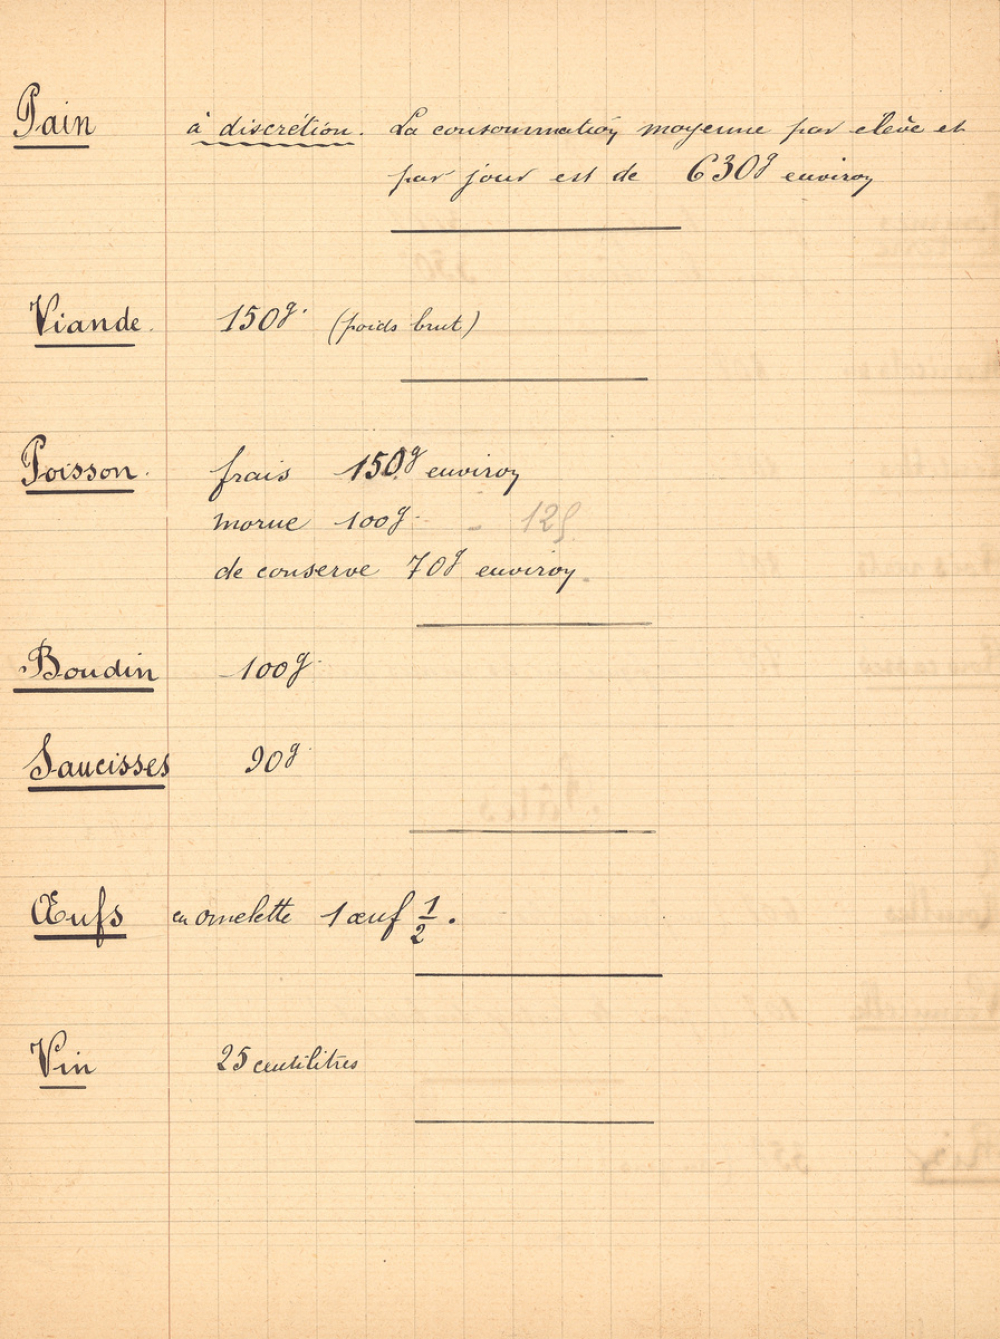 Pain à discrétion. La consommation moyenne par elève et
par jour est de 630g environ
Viande. 150g. (poids brut)
Poisson. frais 150g environ
morue 100g. - 125
de conserve 70g environ.
Boudin 100g.
Saucisses 90g.
Œufs en omelette 1 œuf 1/2.
Vin 25 centilitres